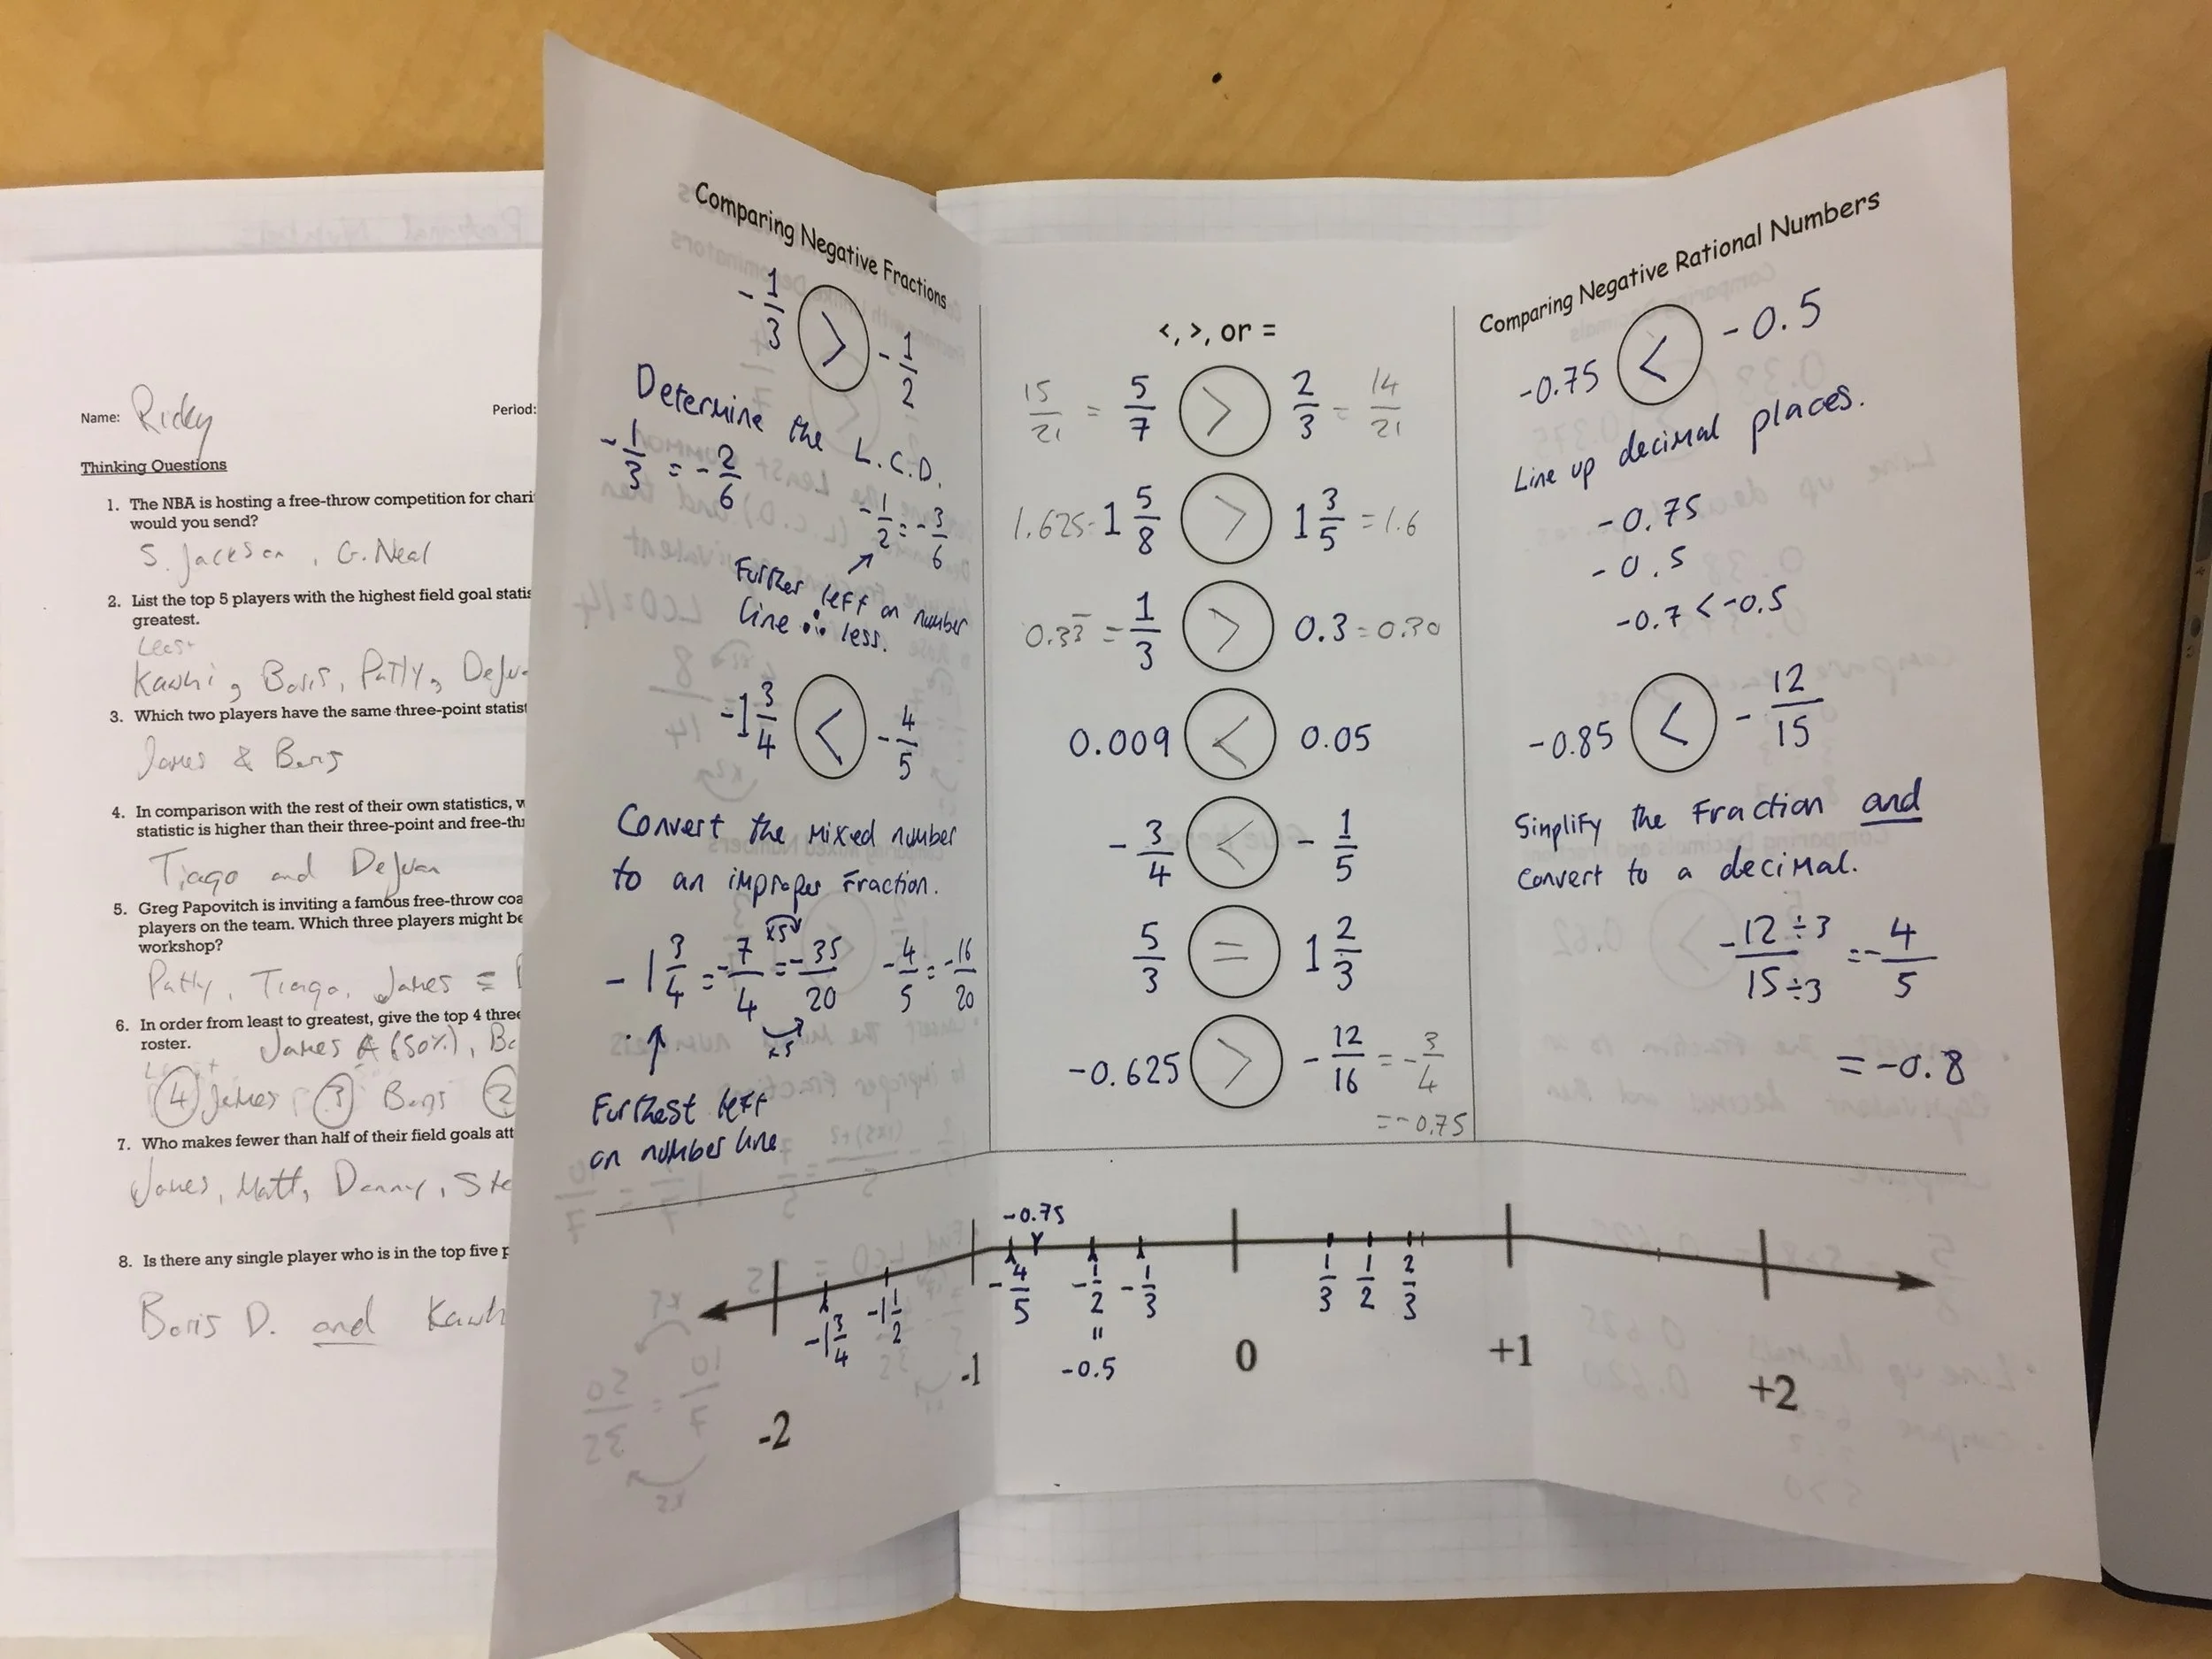 Name: Ricky
Period:
Thinking Questions
1. The NBA is hosting a free-throw competition for chari
would you send?
S. Jackson, G. Neal
2. List the top 5 players with the highest field goal statis
greatest.
Least
Kawhi, Boris, Patty, DeJu
3. Which two players have the same three-point statist
James & Boris
4. In comparison with the rest of their own statistics, w
statistic is higher than their three-point and free-thr
Tiago and DeJuan
5. Greg Papovitch is inviting a famous free-throw coa
players on the team. Which three players might be
workshop?
Patty, Tiago, James =
6. In order from least to greatest, give the top 4 three
roster.
James A (50%), Bo
④ James ③ Boris ②
7. Who makes fewer than half of their field goals att
James, Matt, Danny, Ste
8. Is there any single player who is in the top five p
Boris D. and Kawh
Comparing Negative Fractions
-1/3 > -1/2
Determine the L.C.D.
-1/3 = -2/6
-1/2 = -3/6
Further left on number
line ∴ less.
-1 3/4 < -4/5
Convert the mixed number
to an improper fraction.
x5
-1 3/4 = -7/4 = -35/20 -4/5 = -16/20
x5
Furthest left
on number line
<, >, or =
15/21 = 5/7 > 2/3 = 14/21
1.625 = 1 5/8 > 1 3/5 = 1.6
0.33 = 1/3 > 0.3 = 0.30
0.009 < 0.05
-3/4 < -1/5
5/3 = 1 2/3
-0.625 > -12/16 = -3/4
= -0.75
Comparing Negative Rational Numbers
-0.75 < -0.5
Line up decimal places.
-0.75
-0.5
-0.7 < -0.5
-0.85 < -12/15
Simplify the fraction and
convert to a decimal.
-12÷3/15÷3 = -4/5
= -0.8
-0.75
-1 3/4 -1 1/2 -4/5 -1/2 -1/3 1/3 1/2 2/3
=
-0.5
-2 -1 0 +1 +2